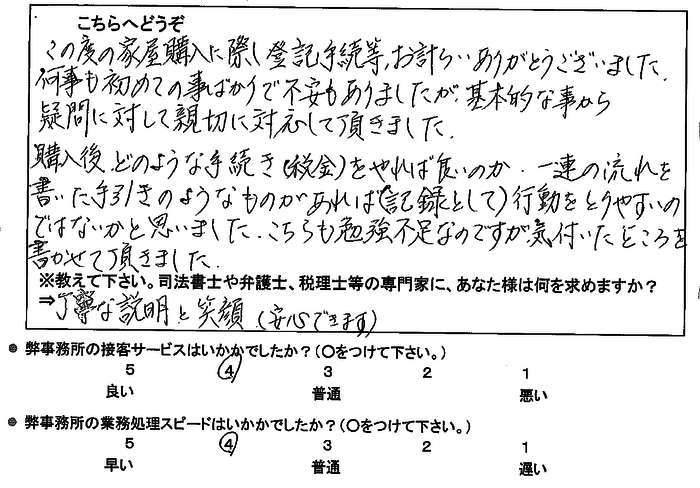 こちらへどうぞ
この度の家屋購入に際し登記手続等、お計らいありがとうございました。
何事も初めての事ばかりで不安もありましたが、基本的な事から
疑問に対して親切に対応して頂きました。
購入後、どのような手続き(税金)をやれば良いのか、一連の流れを
書いた手引きのようなものがあれば(記録として)行動をとりやすいの
ではないかと思いました。こちらも勉強不足なのですが気付いたところを
書かせて頂きました。
※教えて下さい。司法書士や弁護士、税理士等の専門家に、あなた様は何を求めますか？
⇒丁寧な説明と笑顔(安心できます)
● 弊事務所の接客サービスはいかかでしたか？(〇をつけて下さい。)
5 4 3 2 1
良い 普通 悪い
● 弊事務所の業務処理スピードはいかかでしたか？(〇をつけて下さい。)
5 4 3 2 1
早い 普通 遅い